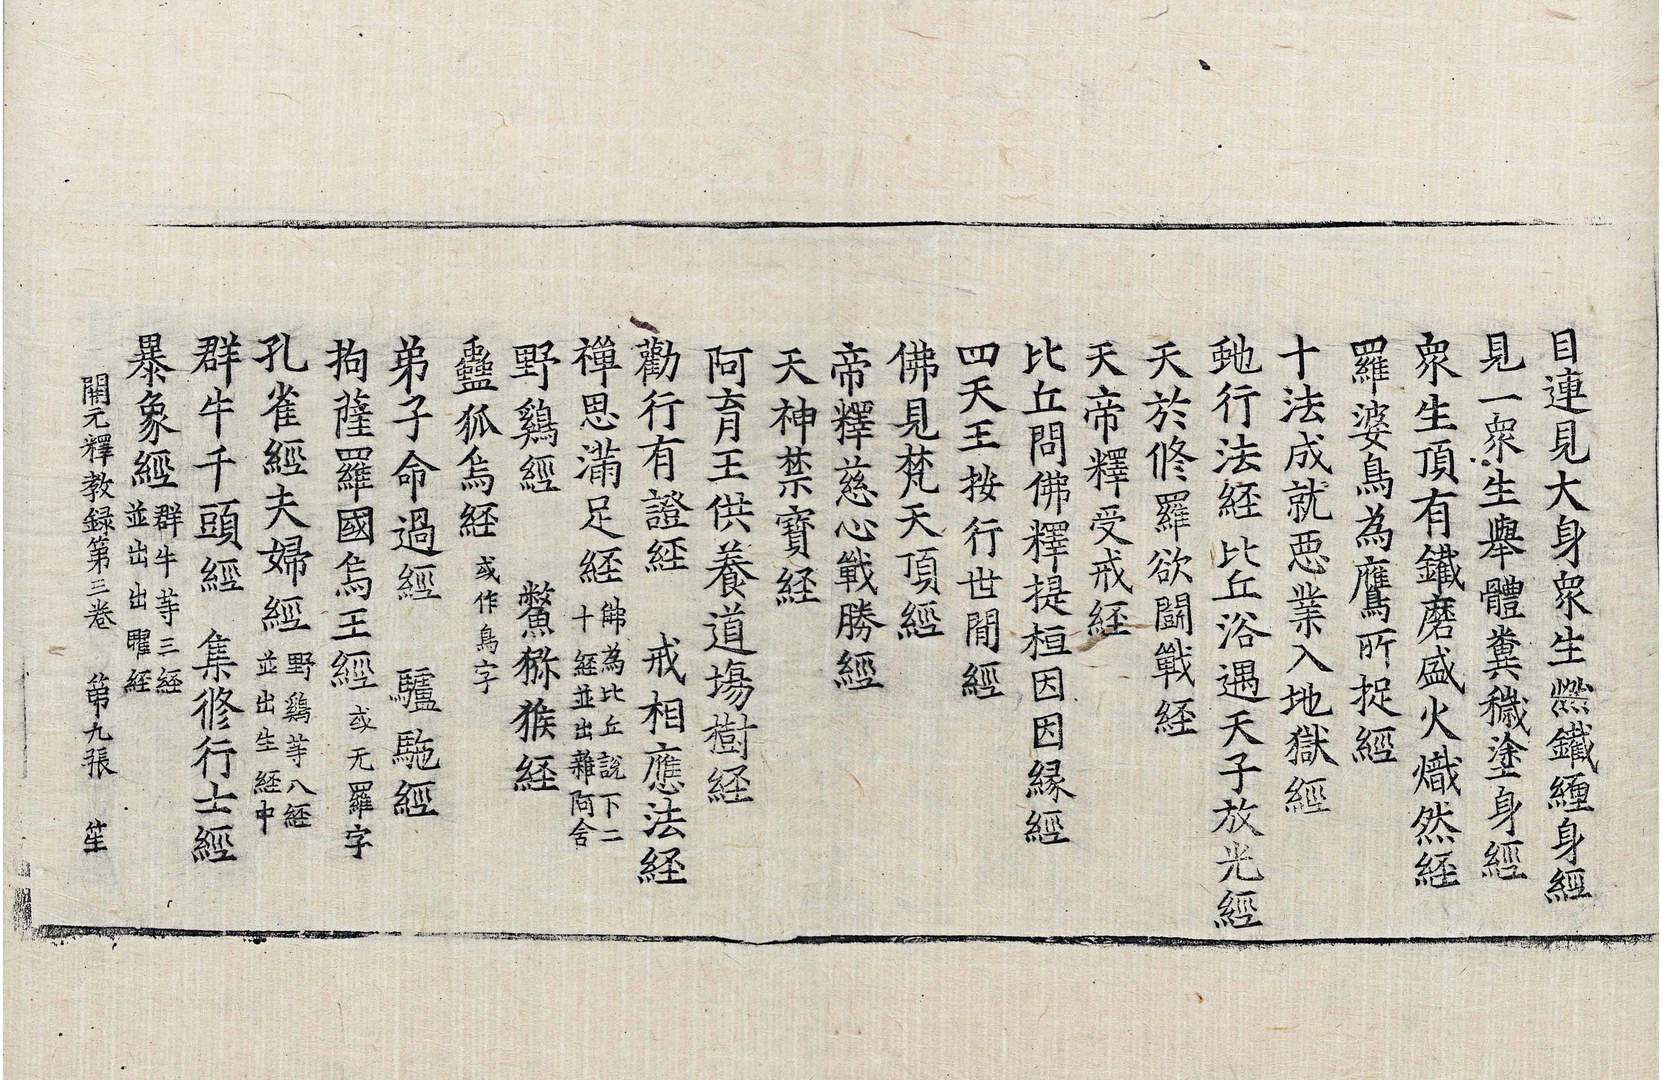 目連見大身衆生燃鐵纏身經
見一衆生舉體糞穢塗身經
衆生頂有鐵磨盛火熾然経
羅婆鳥為鷹所捉經
十法成就惡業入地獄經
虵行法経 比丘浴遇天子放光經
天於修羅欲鬪戰経
天帝釋受戒経
比丘問佛釋提桓因因緣經
四天王按行世間經
佛見梵天頂經
帝釋慈心戰勝經
天神禁寶経
阿育王供養道場樹経
勸行有證經 戒相應法経
禪思滿足経 佛為比丘說下二十経並出雜阿含
野鷄經 鱉獼猴経
蠱狐烏経 或作鳥字
弟子命過經 驢駞經
拘薩羅國烏王經 或无羅字
孔雀經夫婦經 野鷄等八経並出生経中
群牛千頭經 集修行士經
暴象経 群牛等三経並出出曜経
開元釋教録第三卷 第九張 笙